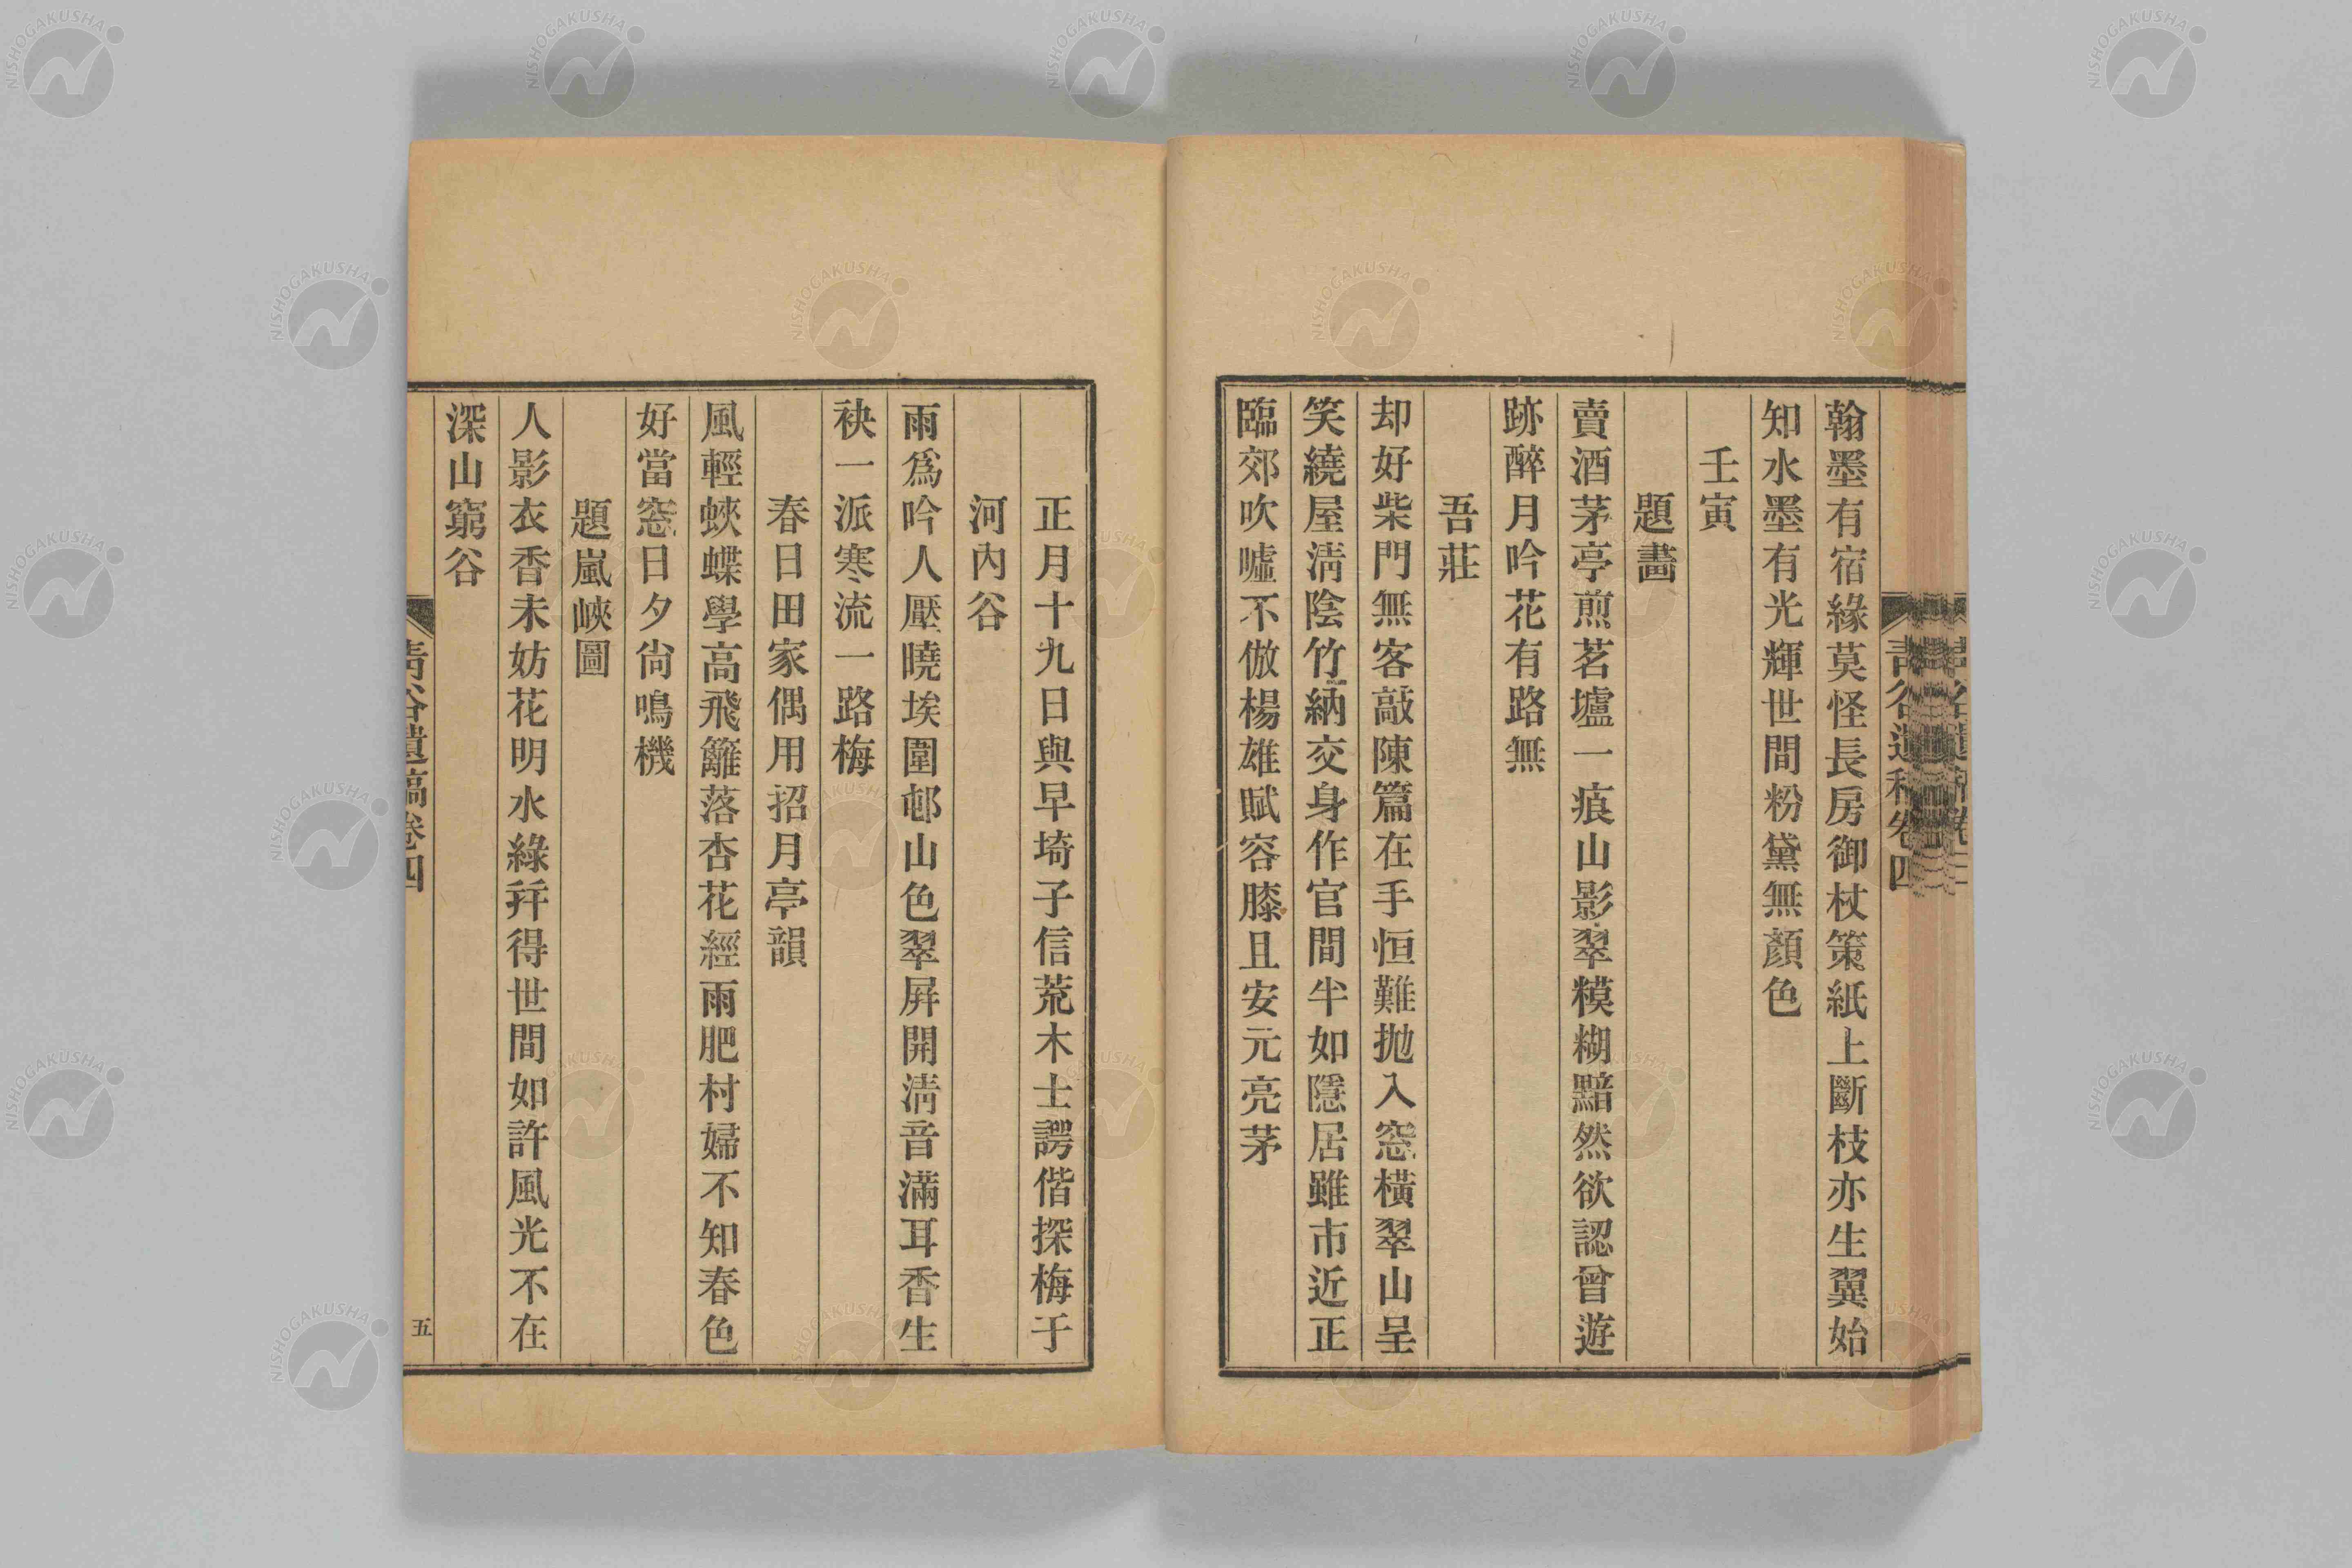 翰墨有宿緣莫怪長房御杖策紙上斷枝亦生翼始
知水墨有光輝世間粉黛無顏色
壬寅
題畵
賣酒茅亭煎茗壚一痕山影翠糢糊黯然欲認曾遊
跡醉月吟花有路無
吾莊
却好柴門無客敲陳篇在手恒難抛入窓橫翠山呈
笑繞屋淸陰竹納交身作官間半如隱居雖市近正
臨郊吹噓不倣楊雄賦容膝且安元亮茅
正月十九日與早埼子信荒木士諤偕探梅于
河內谷
雨爲吟人壓曉埃圍邨山色翠屛開淸音滿耳香生
袂一派寒流一路梅
春日田家偶用招月亭韻
風輕蛺蝶學高飛籬落杏花經雨肥村婦不知春色
好當窓日夕尙鳴機
題嵐峽圖
人影衣香未妨花明水綠拜得世間如許風光不在
深山窮谷
靑谷遺稿卷四
五
NISHOGAKUSHA